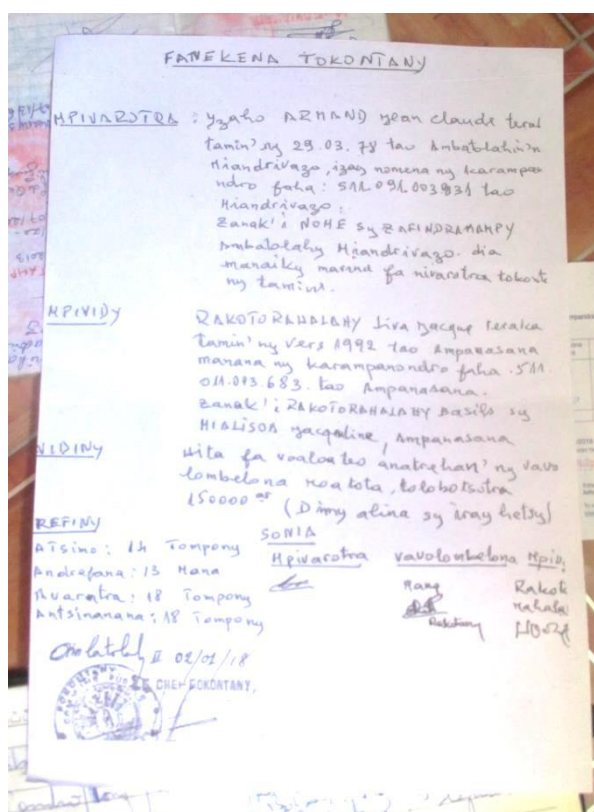 FANEKENA TOKONTANY
MPIVAROTRA : Yzaho ARMAND Jean Claude teral
tamin' ny 29.03.78 tao Ambatolahin'n
Miandrivazo, izay nomena ny karampan
ndro faha : 511.091.003931 tao
Miandrivazo.
Zanak' i NOHE sy ZAFINDRAMAMPY
Ambatolahy Miandrivazo. dia
manaiky marina fa nivarotra tokont
ny tamin
MPIVIDY RAKOTORAHALAHY Liva Jacque teraka
tamin' ny vers 1992 tao Ampanasana
manana ny karampanondro faha . 511
011.013.683. tao Ampanasana.
Zanak' i RAKOTORAHALAHY Basile sy
HIALISOA Jacqueline, Ampanasana
VIDINY Hita fa voaloa teo anatrehan' ny vavo
lombelona noa kota, tolobotsotra
150000 ar (Dimy alina sy iray hetsy)
REFINY
SONIA
ATsimo : 14 Tompony
Mpivarotra vavolombelona Mpivi
Andrefana : 13 Mana
Avaratra : 18 Tompony
Antsinanana : 18 Tompony
Rang
Rakoto
Rahala
II 02/01/18
LE CHEF FOKONTANY,